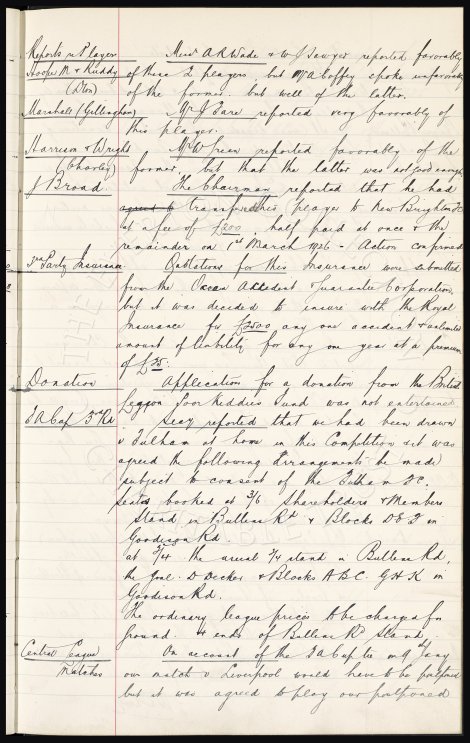 Reports re Player Messrs A R Wade & W J Sawyer reported favorably
Hooper M. & Ruddy of these 2 players, but Mr A Coffey spoke unfavorably
(Dton) of the former, but well of the latter.
Marshall (Gillingham) Mr J Fare reported very favorably of
this player.
Harrison & Wright Mr W Green reported favorably of the
(Chorley) former, but that the latter was not good enough
J Broad. The Chairman reported that he had
agreed to transfer this player to New Brighton FC
at a fee of £200, half paid at once & the
remainder on 1st March 1926 - Action confirmed
3rd Party Insurance Quotations for this Insurance were submitted
from the Ocean Accident & Guarantee Corporation,
but it was decided to insure with the Royal
Insurance for £2500 any one accident & unlimited
amount of liability for any one year at a premium
of £35.
Donation Application for a donation from the British
Legion Poor Kiddies Fund was not entertained
F A Cup 3rd Rd Secy reported that we had been drawn
v Fulham at home in this Competition & it was
agreed the following Arrangements be made
subject to consent of the Fulham F C.
Seats booked at 3/6 Shareholders & Members
Stand in Bullens Rd & Blocks D E F in
Goodison Rd.
at 2/4 the usual 2/4 stand in Bullens Rd,
the Goal. D Decker & Blocks A B C. G H K in
Goodison Rd.
The ordinary league prices to be charged for
ground & ends of Bullens Rd Stand.
Central League On account of the F A Cup tie on 9th Jany
Matches our match v Liverpool would have to be postponed
but it was agreed to play our postponed